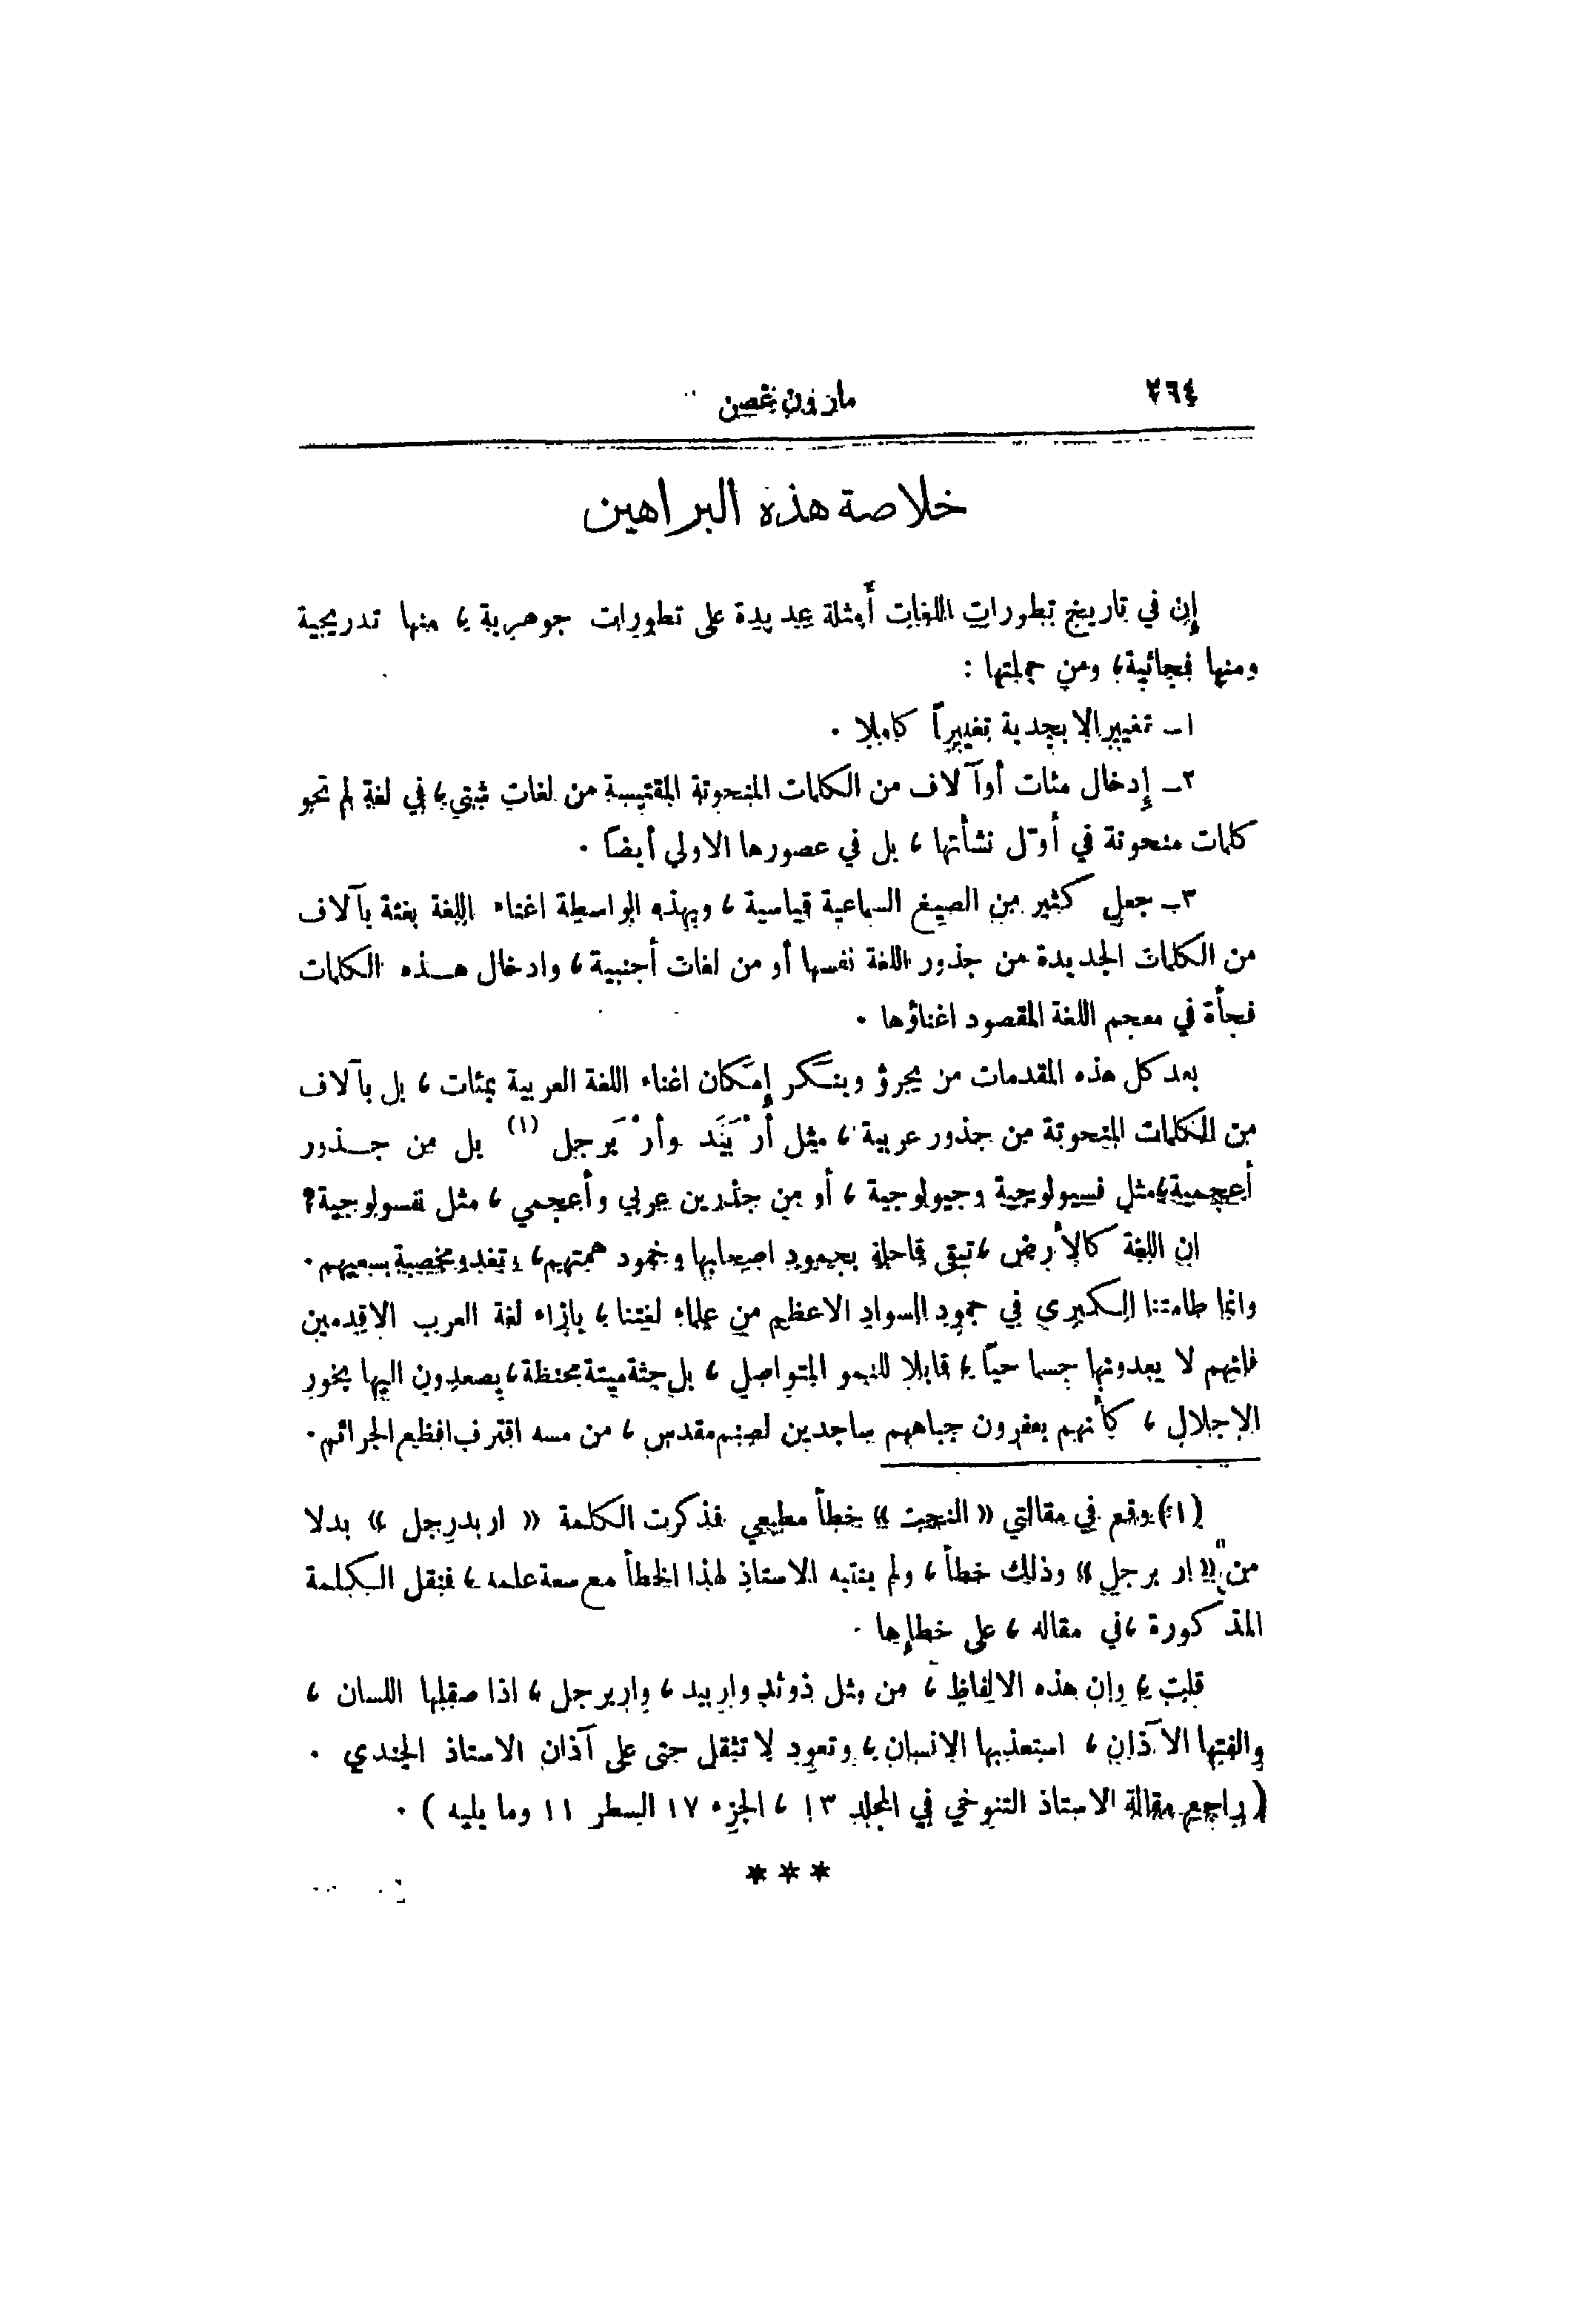 ٢٦٤
مارون غصن
خلاصة هذه البراهين
إن في تاريخ تطورات اللغات أمثلة عديدة على تطورات جوهرية ، منها تدريجية
ومنها فجائية، ومن جملتها :
١ـ تغيير الابجدية تغييراً كاملا .
٢ـ إدخال مئات أو آلاف من الكلمات المنحوتة المقتبسة من لغات شتى، في لغة لم تحو
كلمات منحوتة في أوّل نشأتها ، بل في عصورها الاولى أيضاً .
٣ـ جعل كثير من الصيغ السماعية قياسية ، وبهذه الواسطة اغناء اللغة بغتة بآلاف
من الكلمات الجديدة من جذور اللغة نفسها أو من لغات أجنبية ، وادخال هذه الكلمات
فجأة في معجم اللغة المقصود اغناؤها .
بعد كل هذه المقدمات من يجرؤ وينكر إمكان اغناء اللغة العربية بمئات ، بل بآلاف
من الكلمات المنحوتة من جذور عربية ، مثل وأرْبَرجل (١) بل من جذور
أعجمية، مثل فسيولوجية وجيولوجية ، أو من جذرين عربي وأعجمي ، مثل نفسولوجية؟
ان اللغة كالأرض ، تبقى قاحلة بجمود اصحابها وخمود همتهم، وتغدو مخصبة بسعيهم .
وانما طامتنا الكبرى في جمود السواد الاعظم من علماء لغتنا ، بازاء لغة العرب الاقدمين
فانهم لا يعدونها جسما حيّاً ، قابلا للنمو المتواصل ، بل جثة ميتة محنطة ، يصعدون اليها بخور
الاجلال ، كأنهم يعفرون جباههم ساجدين لصنم مقدس ، من مسه اقترف افظع الجرائم .
(١) وقع في مقالتي « النحت » خطأ مطبعي فذكرت الكلمة « اربدرجل » بدلا
من « ار برجل » وذلك خطأ ، ولم ينتبه الاستاذ لهذا الخطأ مع سعة علمه ، فنقل الكلمة
المذكورة ، في مقاله ، على خطإها .
قلت ، وان هذه الالفاظ ، من مثل واربيد ، واربرجل ، اذا صقلها اللسان ،
والفتها الآذان ، استعذبها الانسان ، وتعود لا تثقل حتى على آذان الاستاذ الجندي .
( راجع مقالة الاستاذ التنوخي في المجلد ١٣ ، الجزء ١٧ السطر ١١ وما يليه ) .
***